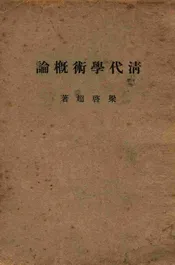 清代學術概論
梁啓超著